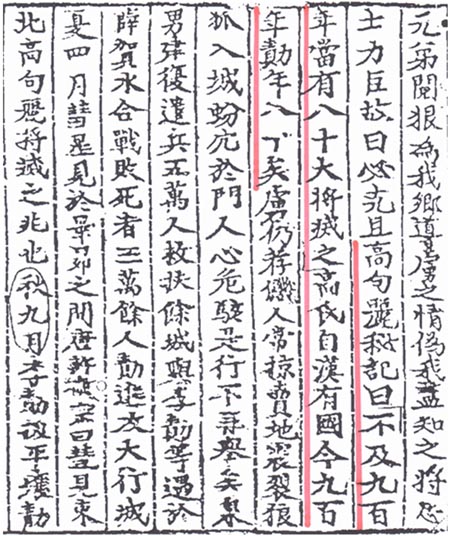 兄弟鬩狠為我鄉導虜之情偽我盡知之將忠
士力臣故曰必克且高句麗秘記曰不及九百
年當有八十大將滅之高氏自漢有國今九百
年勣年八十矣虜仍荐饑人常掠賣地震裂狼
狐入城蚡穴於門人心危駭是行不再舉矣泉
男建復遣兵五萬人救扶餘城與李勣等遇於
薛賀水合戰敗死者三萬餘人勣進攻大行城
夏四月彗星見於畢卯之間唐許敬宗曰彗見東
北高句麗將滅之兆也秋九月李勣拔平壤勣